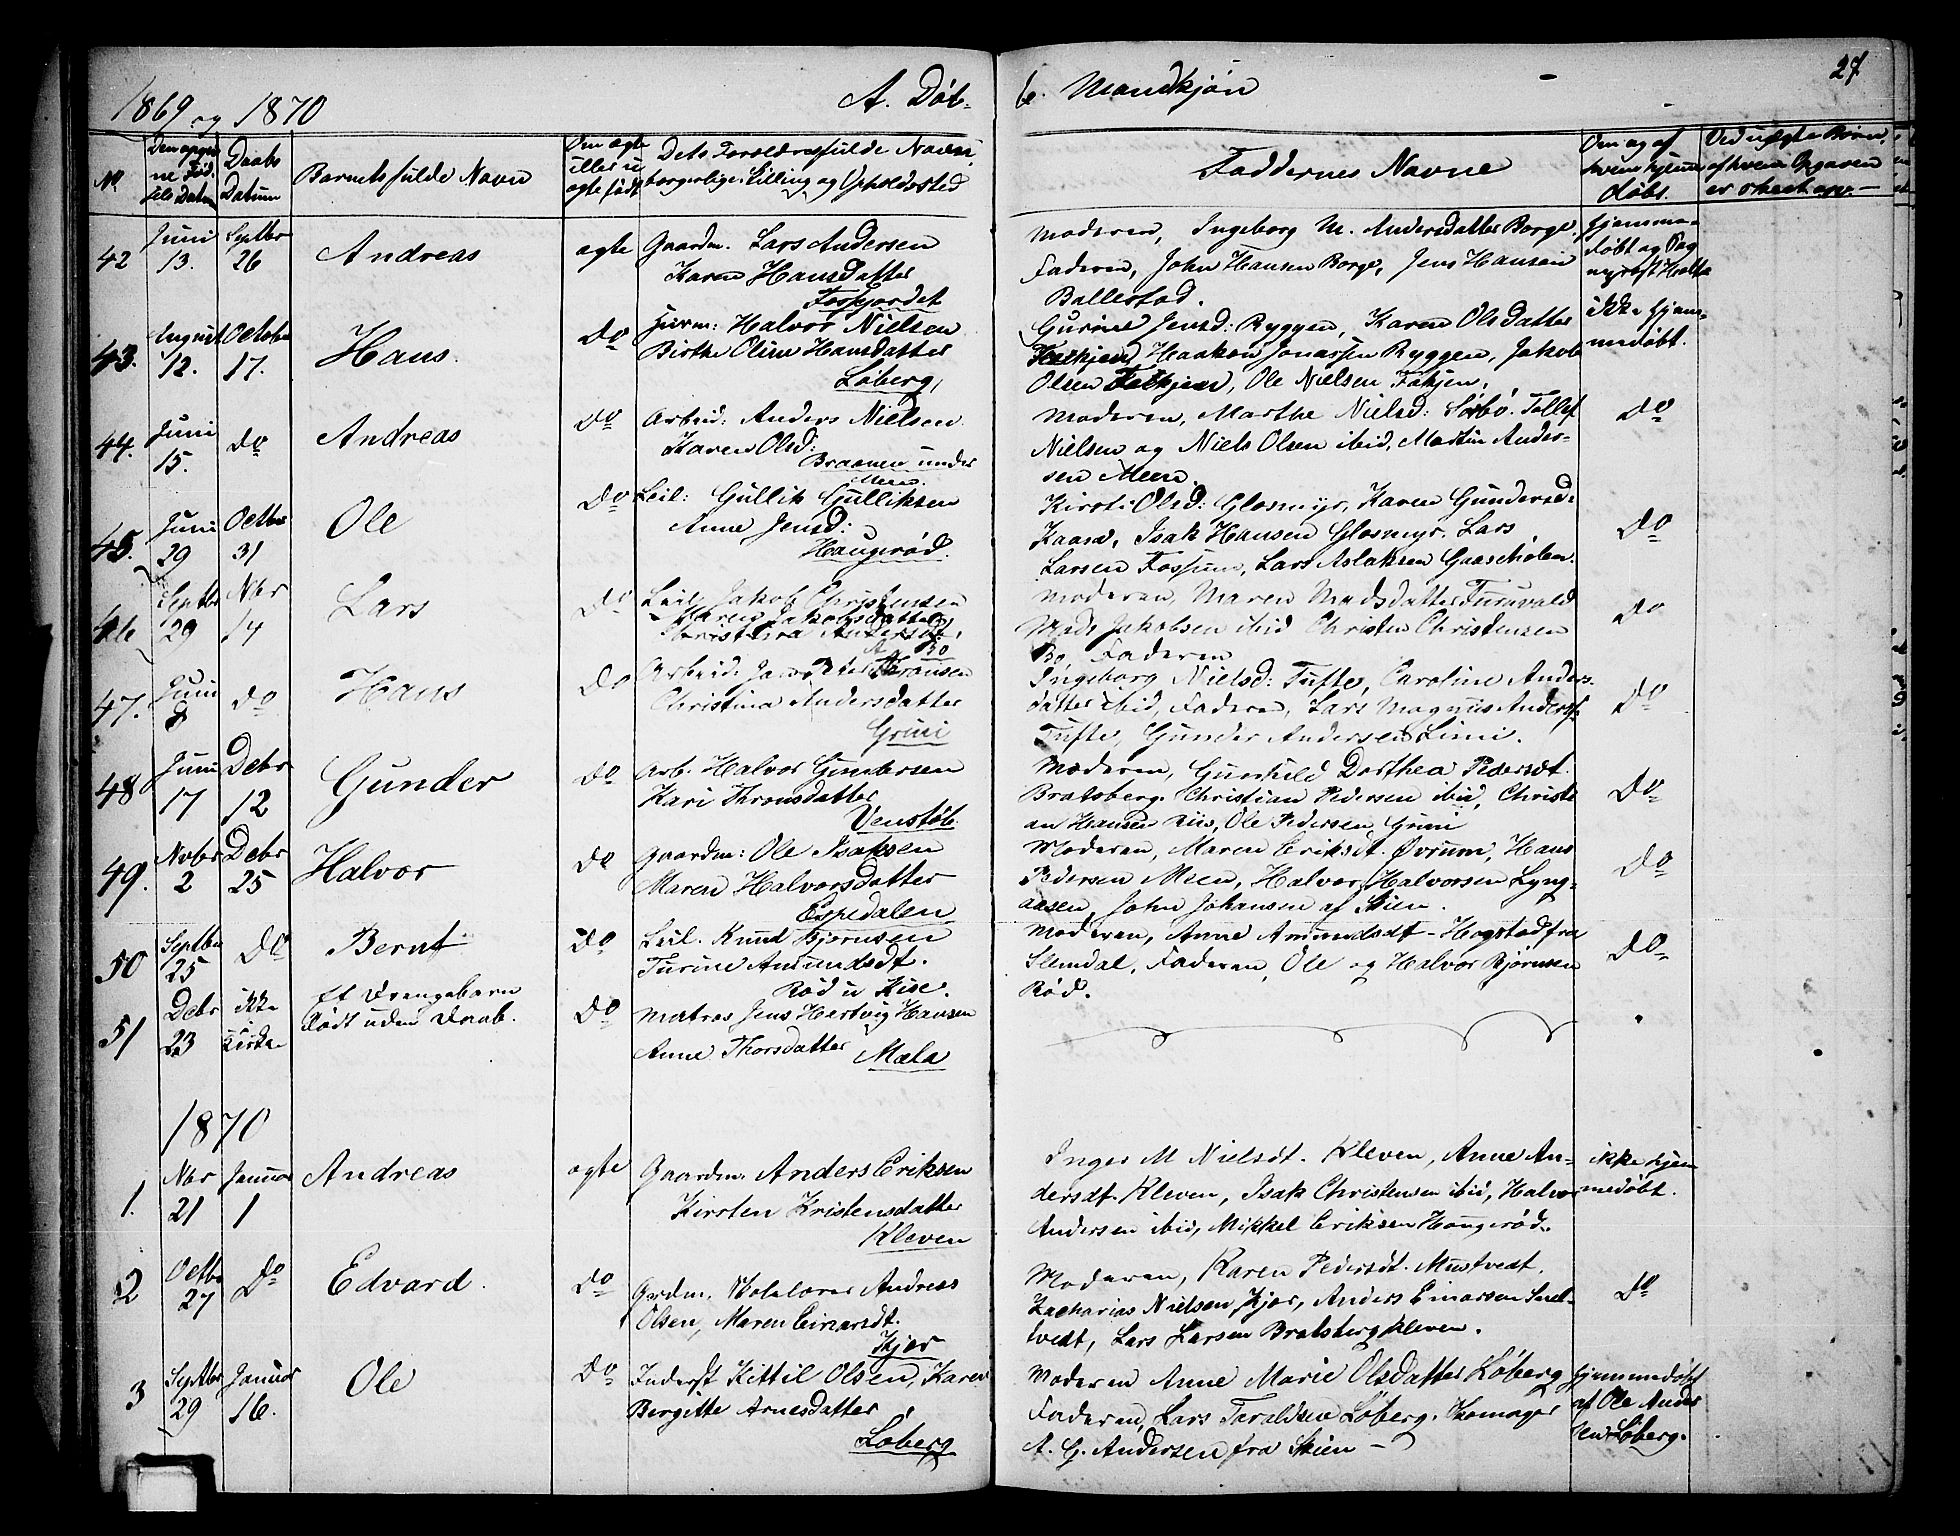 1869 og 1870 A. Døb-
b. Mandkjøn 27
No
Den opgivne Fødselsdatum
Daabs Datum
Barnets fulde Navn
Om ægte eller uægte født
Dets Forældres fulde Navn, borgerlige Stilling og Opholdssted
Faddernes Navne
Om og af hvem hjemmedøbt.
Ved uægte Børn,
42 Juni 13. Septbr 26 Andreas ægte Gaardm. Lars Andersen
Karen Hansdatter
Fossjordet
Moderen, Ingeborg M. Andersdatter Borge,
Faderen, John Hansen Borge, Jens Hansen
Ballestad.
hjemmedøbt
43. August 12. October 17. Hans. Do Huusm: Halvor Nielsen
Birthe Oline Hansdatter
Løberg,
Gurine Jensd: Ryggen, Karen Olsdatter
Haakon Jonassen Ryggen, Jakob
Olsen Ole Nielsen Fokjen.
ikke hjemmedøbt.
44. Juni 15. Do Andreas Do Arbeid: Anders Nielsen
Karen Olsd:
Braanen under
Meen.
Moderen, Marthe Nielsd: Sørbø. Tollef
Nielsen og Niels Olsen ibid, Martin Ander-
sen Meen.
Do
45. Juni 29 Octbr. 31 Ole Do Leil: Gullik Gulliksen
Anne Jensd:
Haugerød.
Kirst: Olsd: Glosmyr, Karen Gundersd:
Kaasa, Isak Hansen Glosmyr. Lars
Larsen Fossum, Lars Aslaksen Gaasehølen.
Do
46 Septbr 29 Nbr 14 Lars Do Leil Jakob Christensen
Maren Jakobsdatter
Bø
Moderen, Maren Madsdatter Furuvald
Mads Jakobsen ibid Christen Christensen
Bø, Faderen
Do
47. Juni 8 Do Hans Do Arbeid: Thronsen
Christina Andersdatter
Grini
Ingeborg Nielsd: Tufte, Caroline Anders-
datter ibid, Faderen, Lars Magnus Anders.
Tufte, Gunder Andersen Limi.
Do
48 Juni 17 Debr 12 Gunder Do Arb. Halvor Gundersen
Kari Thronsdatter
Venstøb
Moderen, Gunhild Dorthea Pedersdt.
Bratsberg. Christian Pedersen ibid, Christi-
an Hansen Riis, Ole Pedersen Grini
Do
49. Novbr 2 Debr 25 Halvor Do Gaardm: Ole Isaksen
Maren Halvorsdatter
Espedalen
Moderen, Maren Eriksdt. Øvrum, Hans
Pedersen Meen, Halvor Halvorsen Lyng-
aasen, John Johansen af Skien.
Do
50 Septbr 25 Do Bernt Do Leil. Knud Bjørnsen
Turine Amundsdt.
Rød u Kise.
Moderen, Anne Amundsdt- Hogstad fra
Slemdal, Faderen, Ole og Halvor Bjørnsen
Rød.
Do
51 Debr 23 ikke Kirke Et Drengebarn
født uden Daab. Do Matros Jens Hertvig Hansen
Anne Thorsdatter Mæla
1870
1. Nbr 21 Januar 1 Andreas ægte Gaardm. Anders Eriksen
Kirsten Kristensdatter
Kleven
Inger M Nielsdt. Kleven, Anne An-
dersdt. Kleven, Isak Christensen ibid, Halvor
Andersen ibid, Mikkel Eriksen Haugerød.
ikke hjemmedøbt.
2 Octbr 27 Do Edvard. Do Grdm. Skolelærer Andreas
Olsen, Maren Einarsdt.
Kjær
Moderen, Karen Pedersdt. Mustvedt.
Zacharias Nielsen Kjær, Anders Einarsen Sneltvedt,
Lars Larsen Bratsbergkleven.
Do
3 Septbr 29 Januar 16. Ole Do Inderst Kittil Olsen, Karen
Bergitte Arnesdatter
Løberg
Moderen Anne Marie Olsdatter Løberg
Faderen, Lars Taraldsen Løberg. Skomager
A. G. Andersen fra Skien -
hjemmedøbt
af Ole Anders
sen Løberg.